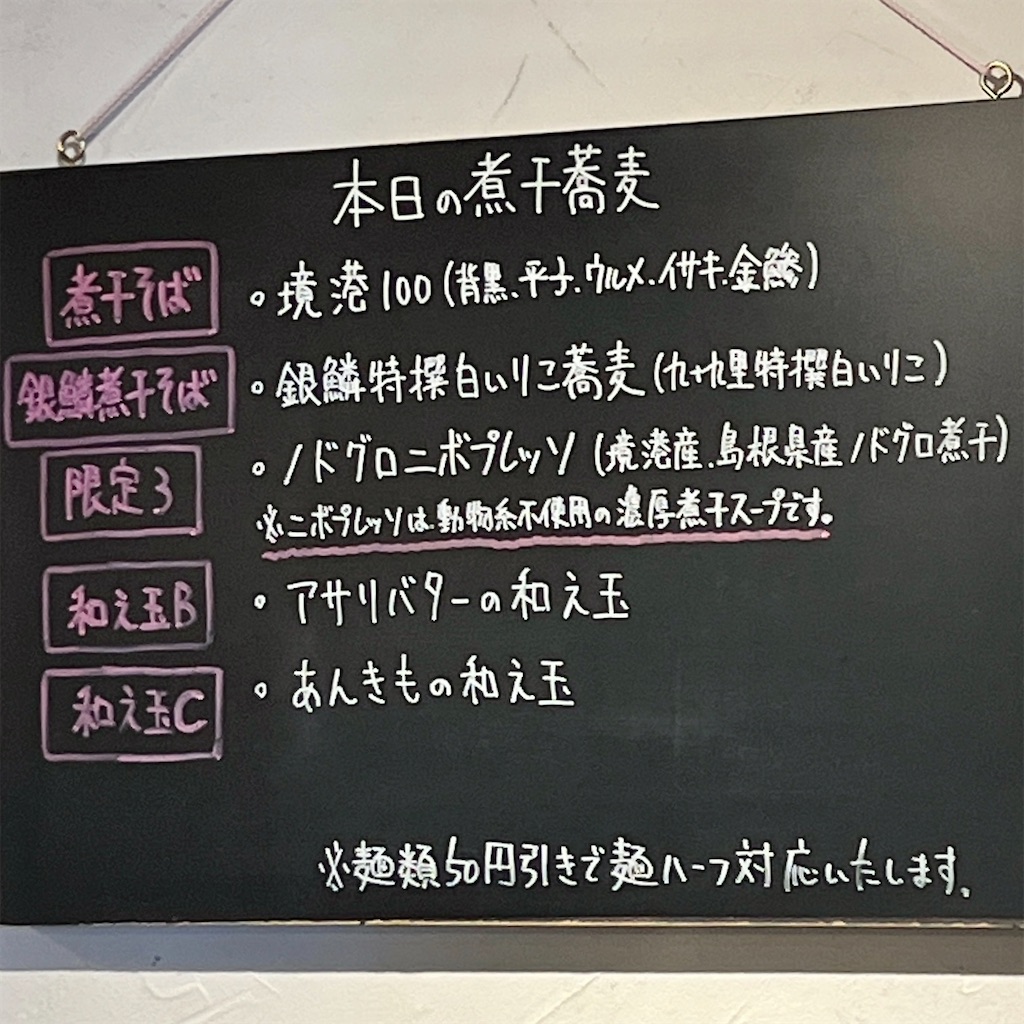 本日の煮干蕎麦
煮干そば 。境港100(背黒、平子、ウルメ、イサキ、金鱗)
銀鱗煮干そば 。銀鱗特撰白いりこ蕎麦(九十九里特撰白いりこ)
限定3 。ノドグロニボプレッソ(境港産、島根県産ノドグロ煮干)
※ニボプレッソは、動物系不使用の濃厚煮干スープです。
和え玉B 。アサリバターの和え玉
和え玉C 。あんきもの和え玉
※麺類50円引きで麺ハーフ対応いたします。